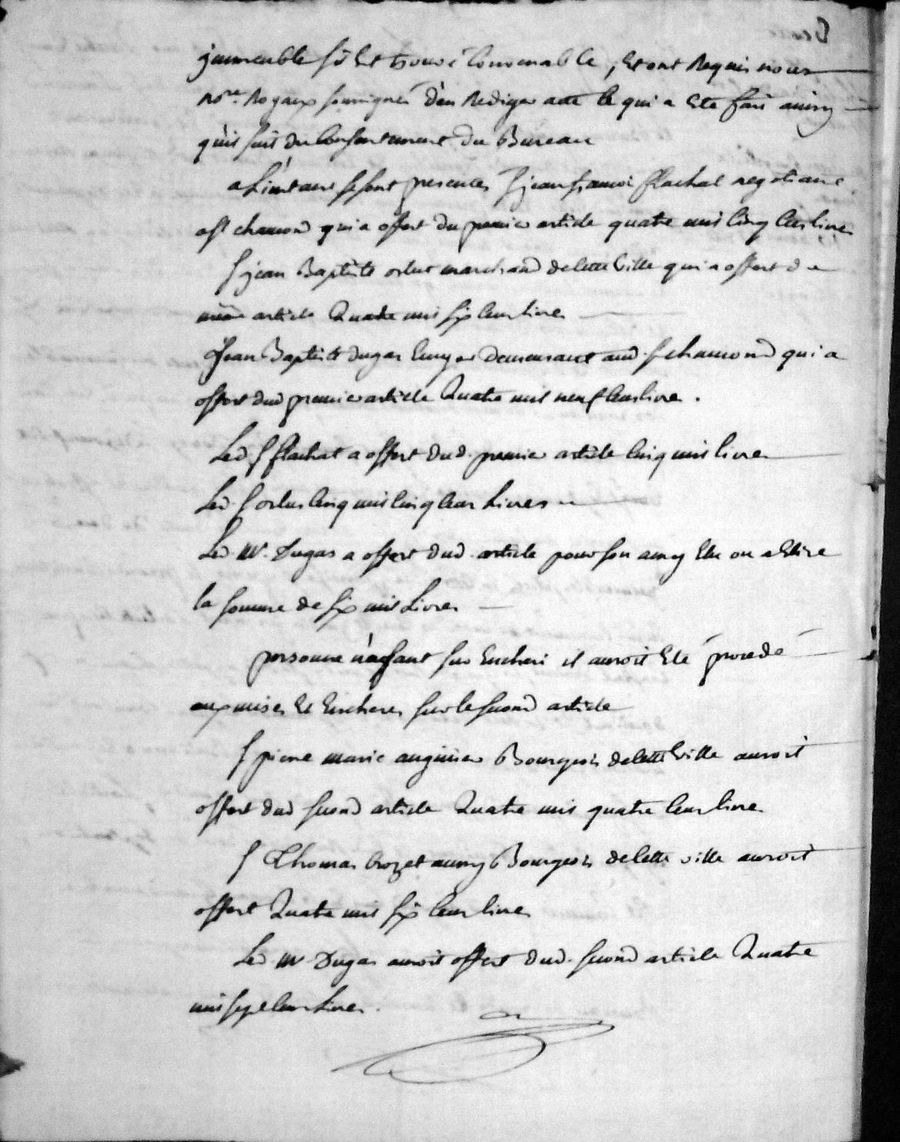 immeuble s'il Est trouvé Convenable, Et ont Requis nous
No.res Royaux soussignés d'en Rediger acte ce qui a Eté fait ainsy
qu'il suit du Consentement du Bureau
a L'instant se sont presentés Sr jean françois flachat negotiant
a St chamond qui a offert du premier article quatre mil Cinq Cens livres
Sr jean Baptiste ortus marchand de cette Ville qui a offert du
même article Quatre mil six Cens livres
Jean Baptiste dugas Ecuyer demeurant aud St chamond qui a
offert dud premier article Quatre mil neuf Cens livres.
Led Sr flachat a offert dud. premier article Cinq mil livres
Led Sr ortus Cinq mil Cinq Cens Livres
Led Mr. Dugas a offert dud. article pour son amy Elu ou a Elire
la somme de six mil Livres
personne n'ayant sur Encheri il auroit Eté procedé
aux mises Et Encheres sur le second article
Sr pierre marie Bourgeois de cette Ville auroit
offert dud second article Quatre mil quatre Cens livres
Sr Thomas Crozet aussy Bourgeois de cette ville auroit
offert Quatre mil six Cens livres
Led Mr Dugas auroit offert dud. second article Quatre
mil sept Cens Livres.